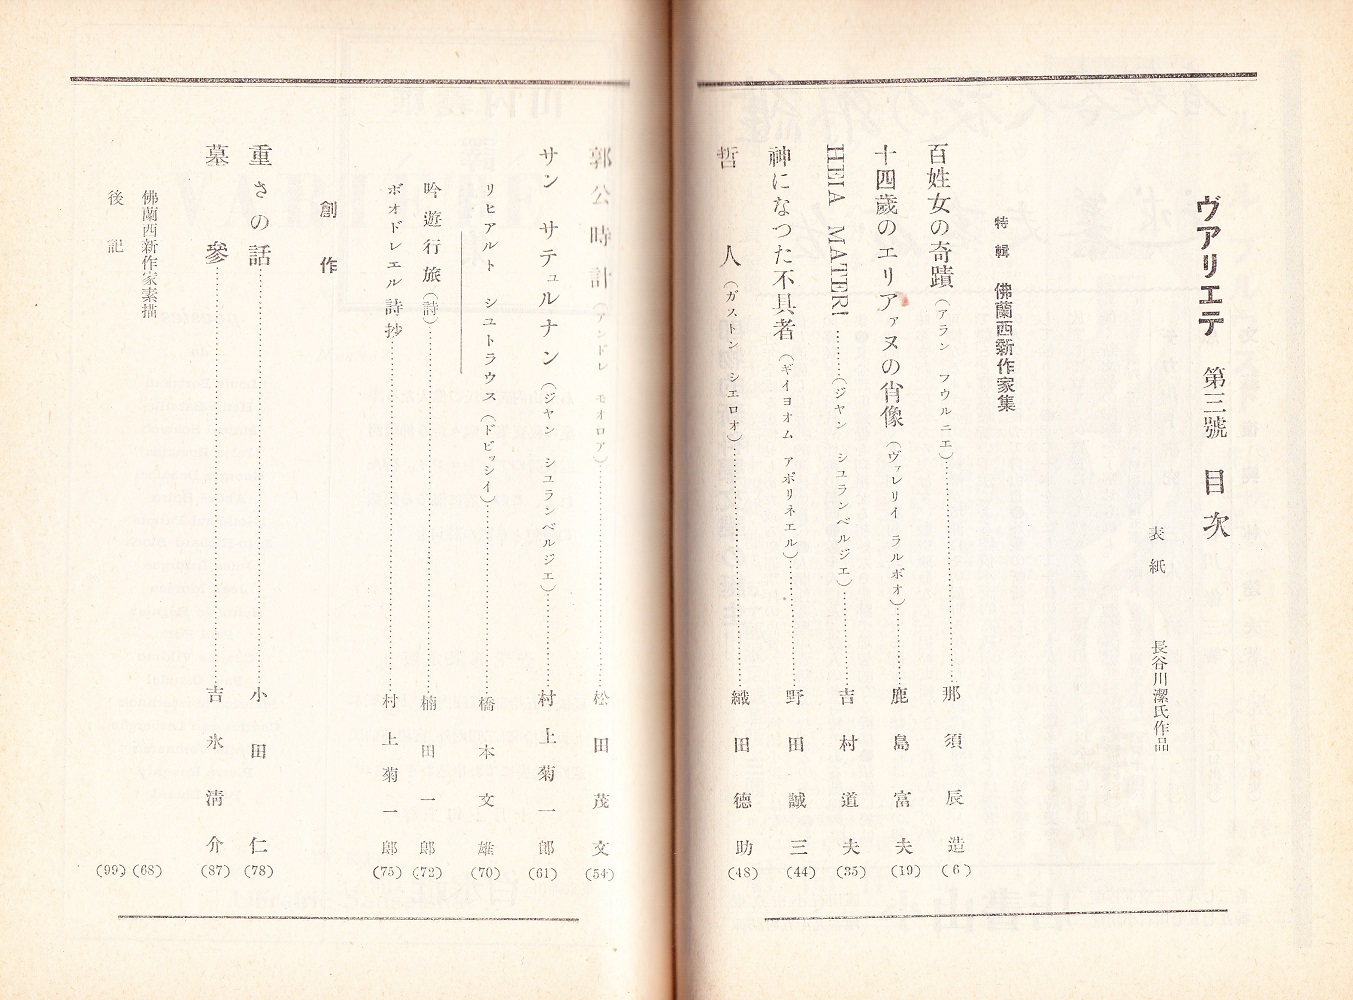 ヴアリエテ 第三號 目次
表紙 長谷川潔氏作品
特輯 佛蘭西新作家集
百姓女の奇蹟(アラン フウルニエ)……那須辰造(6)
十四歲のエリアァヌの肖像(ヴァレリイ ラルボオ)……鹿島富夫(19)
HEIA MATER!……(ジヤン シユランベルジエ)……吉村道夫(35)
神になつた不具者(ギイヨオム アポリネエル)……野田誠三(44)
哲人(ガストン シエロオ)……織田德助(48)
郭公時計(アンドレ モオロア)……松田茂文(54)
サン サテュルナン(ジヤン シユランベルジエ)……村上菊一郎(61)
リヒアルト シユトラウス(ドビッシイ)……橋本文雄(70)
吟遊行旅(詩)……楠田一郎(72)
ボオドレエル詩抄……村上菊一郎(75)
創作
重さの話……小田仁(78)
墓參……吉氷淸介(87)
佛蘭西新作家素描(68)
後記(99)